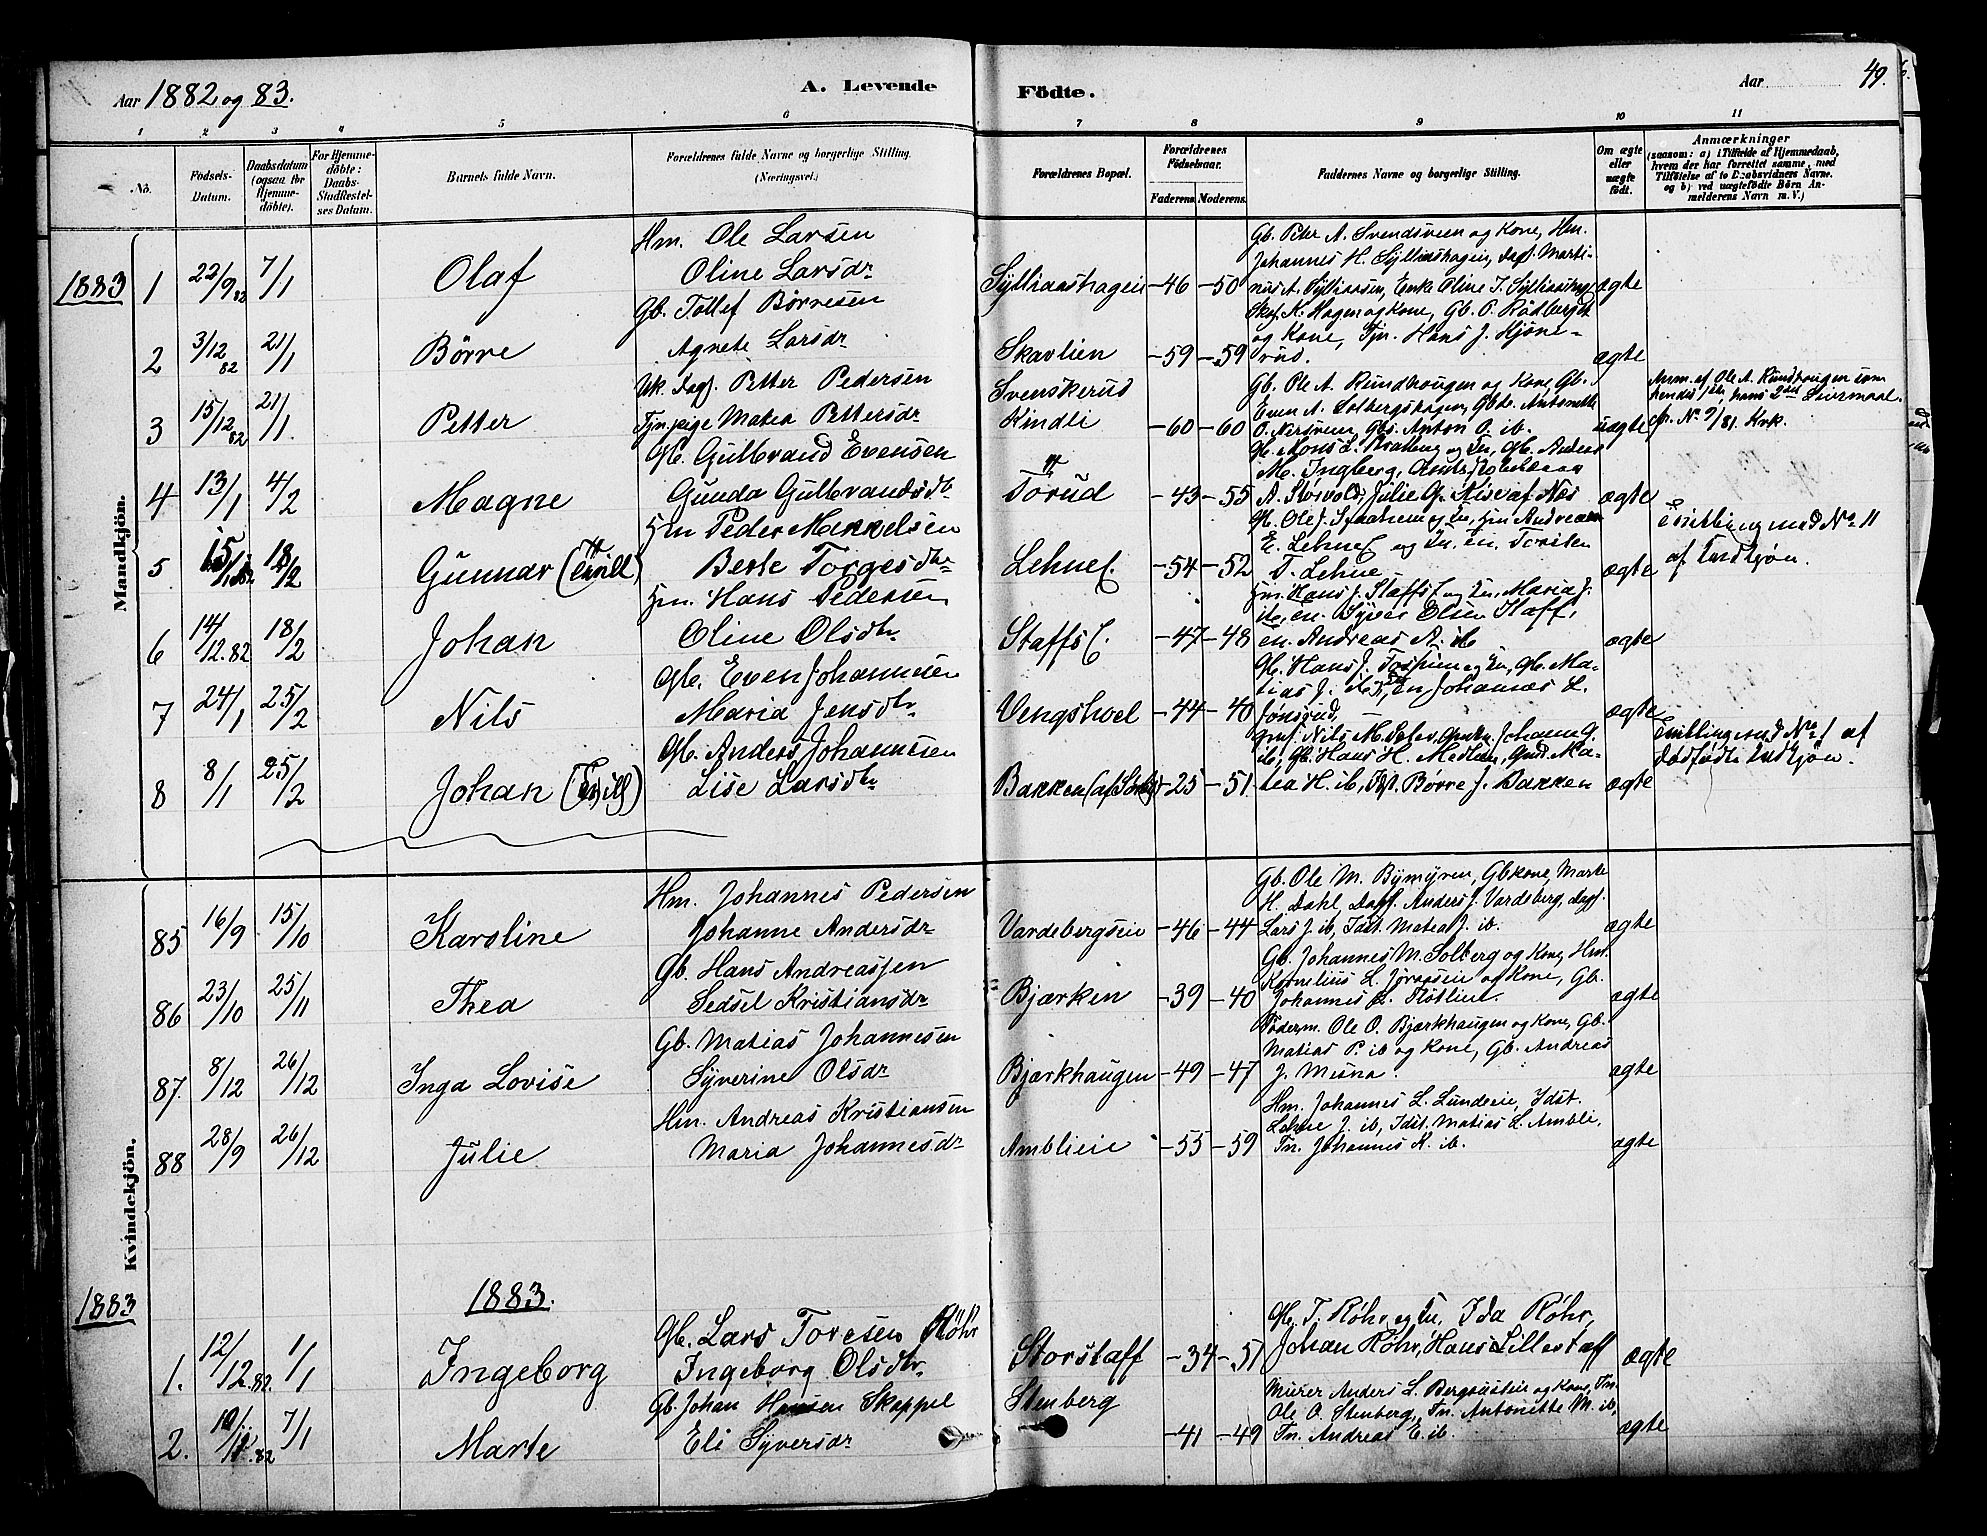 Aar 1882 og 83.
A. Levende
Födte.
Aar
49.
1 2 3 4 5 6 7 8 9 10 11
No.
Födsels-Datum.
Daabsdatum (ogsaa for Hjemme-döbte).
For Hjemme-döbte: Daabs-Stadfæstel-ses Datum.
Barnets fulde Navn.
Forældrenes fulde Navne og borgerlige Stilling. (Næringsvei.)
Forældrenes Bopæl.
Forældrenes Födselsaar.
Faderens. Moderens.
Faddernes Navne og borgerlige Stilling.
Om ægte eller uægte födt.
Anmærkninger
(saasom: a) i Tilfælde af Hjemmedaab, hvem der har forrettet samme, med Tilföielse af to Daabsvidners Navne, og b) ved uægtefödte Börn An-melderens Navn m. V.)
Mandkjön.
1883 1 22/9 82 7/1 Olaf
Hm. Ole Larsen
Oline Larsdr
Sylliaashagen -46 -50
Gb. Peter A. Svendsveen og Kone, Hm.
Johannes H. Sylliaashagen, Dagl. Marti-
nus A. Sylliaasen, Enke Oline I.
ægte
2 3/12 82 21/1 Börre
Gb. Tollef Börresen
Agnete Larsdr
Skavlien -59 -59
K. Hagen og Kone, Gb. O. Rödberget
og Kone, Tjn. Hans J. Hjöne-
rud.
ægte
3 15/12 82 21/1 Petter
Uk. Dagl. Petter Pedersen
Tjn. pige Matea Pettersdr
Svenskerud
Kindli -60 -60
Gb. Ole A. Rundhaugen og Kone, Gb.
Even A. Solbergshagen, Gbdr. Antonette
O. Nersveen, Gbs. Anton O. ib.
uægte
Anm. af Ole A. Rundhaugen som
hendes 1ste, hans 2det Leiermaal.
cfr. No 9/81. Kvk.
4 13/1 4/2 Magne
Gb. Gulbrand Evensen
Gunda Gulbrandsdtr
Törud -43 -55
Gb. Mons L. Bratberg og Kn, Gb. Anders
M. Ingberg,
A. Störvold, Julie G. Rise af Næs
ægte
5 15/1 18/2 Gunnar (Tvill)
Hm Peder Mikkelsen
Berte Torgersdtr
Lehne -54 -52
Gb. Ole J. Spaahem og Kn, Hm Andreas
E. Lehne og Kn, En. Torsten
T. Lehne
ægte
Tvilling med No 11
af Kvdkjön.
6 14/12.82 18/2 Johan
Hm. Hans Pedersen
Oline Olsdtr
Staffs -47 -48
Hm. Hans J. Staffs og Kn, Maria J.
ib, En. Syver Olsen Staff,
En. Andreas A. ib
ægte
7 24/1 25/2 Nils
Gb. Even Johannesen
Maria Jensdtr
Vengshoel -44 -40
Gb. Hans J. og Kn, Gb. Ma-
tias J. En Johannes L.
Jönsrud,
ægte
8 8/1 25/2 Johan (Tvill)
Gb. Anders Johannesen
Lise Larsdtr
Bakken -25 -51
Nils M. Johanne G.
ib, Gb. Hans H. Medlien, Ma-
tea H. ib, Börre J. Bakken
ægte
Tvilling med No 1 af
dödfödte Kvdkjön.
Kvindekjön.
85 16/9 15/10 Karoline
Hm. Johannes Pedersen
Johanne Andersdr
Vardebergseie -46 -44
Gb. Ole M. Bymyren, Gbkone, Marte
H. Dahl, Dagl. Anders J. Vardeberg, Dagl.
Lars J. ib, Idst. Matea J. ib.
ægte
86 23/10 25/11 Thea
Gb. Hans Andreassen
Sedsel Kristiansdr
Bjærkin -39 -40
Gb. Johannes M. Solberg og Kone, Hm.
Kornelius L. og Kone, Gb.
Johannes L. Flötlien.
ægte
87. 8/12 26/12 Inga Lovise
Gb. Matias Johannesen
Syverine Olsdr
Bjærkhaugen -49 -47
Föderm. Ole O. Bjærkhaugen og Kone, Gb.
Matias P. ib og Kone, Gb. Andreas
J. Musna.
ægte
88 28/9 26/12 Julie
Hm. Andreas Kristiansen
Maria Johannesdr
Amblieie -55 -59
Hm. Johannes L. Lundeeie, Idst.
Lehne J. ib, Idst. Matias L. Ambli,
Tn. Johannes K. ib.
ægte
1883
1883.
1. 12/12.82. 1/1 Ingeborg
Gb. Lars Toresen Röhr
Ingeborg Olsdtr
Storstaff -34 -51
Gb. T. Röhr og Kn, Ida Röhr,
Johan Röhr, Hans Lillestaff
ægte
2. 10/11.82 7/1 Marte
Gb. Johan Hansen Skappel
Eli Syversdr
Stenberg -41 -49
Murer Anders L. Bergseustuen og Kone, Tn.
Ole O. Stenberg, Tn. Antonette M. ib,
Tn. Andreas E. ib.
ægte